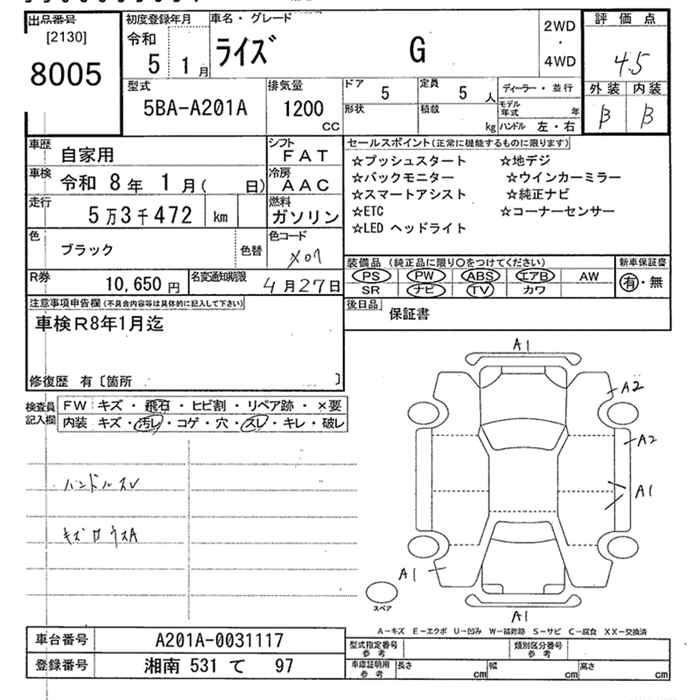 出品番号
[2130]
8005
初度登録年月
令和
5 1月
車名・グレード
ライズ G
2WD
・
4WD
評価点
4.5
外装 内装
B B
型式
5BA-A201A
排気量
1200
cc
ドア
5
定員
5 人
形状
積載
kg
ディーラー・並行
モデル年式 年
ハンドル 左・右
車歴
自家用
シフト
FAT
車検
令和 8年 1月( 日)
冷房
AAC
走行
5万3千472 km
燃料
ガソリン
色
ブラック
色替
色コード
X07
R券
10,650円
名変通知期限
4月27日
セールスポイント(正常に機能するものに限ります)
☆プッシュスタート ☆地デジ
☆バックモニター ☆ウインカーミラー
☆スマートアシスト ☆純正ナビ
☆ETC ☆コーナーセンサー
☆LED ヘッドライト
装備品(純正品に限り○をつけてください)
PS PW ABS エアB AW
SR ナビ TV カワ
新車保証書
有・無
後日品
保証書
注意事項申告欄(不具合内容等は具体的に記入して下さい)
車検R8年1月迄
修復歴 有〔箇所 〕
検査員記入欄
FW キズ・飛石・ヒビ割・リペア跡・×要
内装 キズ・汚レ・コゲ・穴・スレ・キレ・破レ
ハンドルスレ
A1
A2
A2
A1
A1
A1
スペア
A-キズ E-エクボ U-凹み W-補修跡 S-サビ C-腐食 XX-交換済
車台番号
A201A-0031117
登録番号
湘南 531 て 97
型式指定番号
参考
類別区分番号
参考
車庫証明用
参考
長さ cm
幅 cm
高さ cm